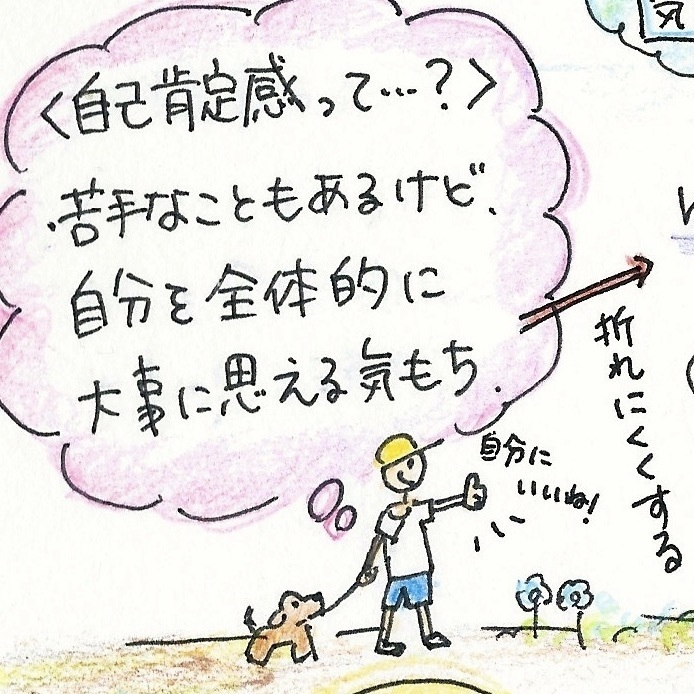 <自己肯定感って…?>
・苦手なこともあるけど、
自分を全体的に
大事に思える気もち.
自分に
いいね!
折れにくくする
気